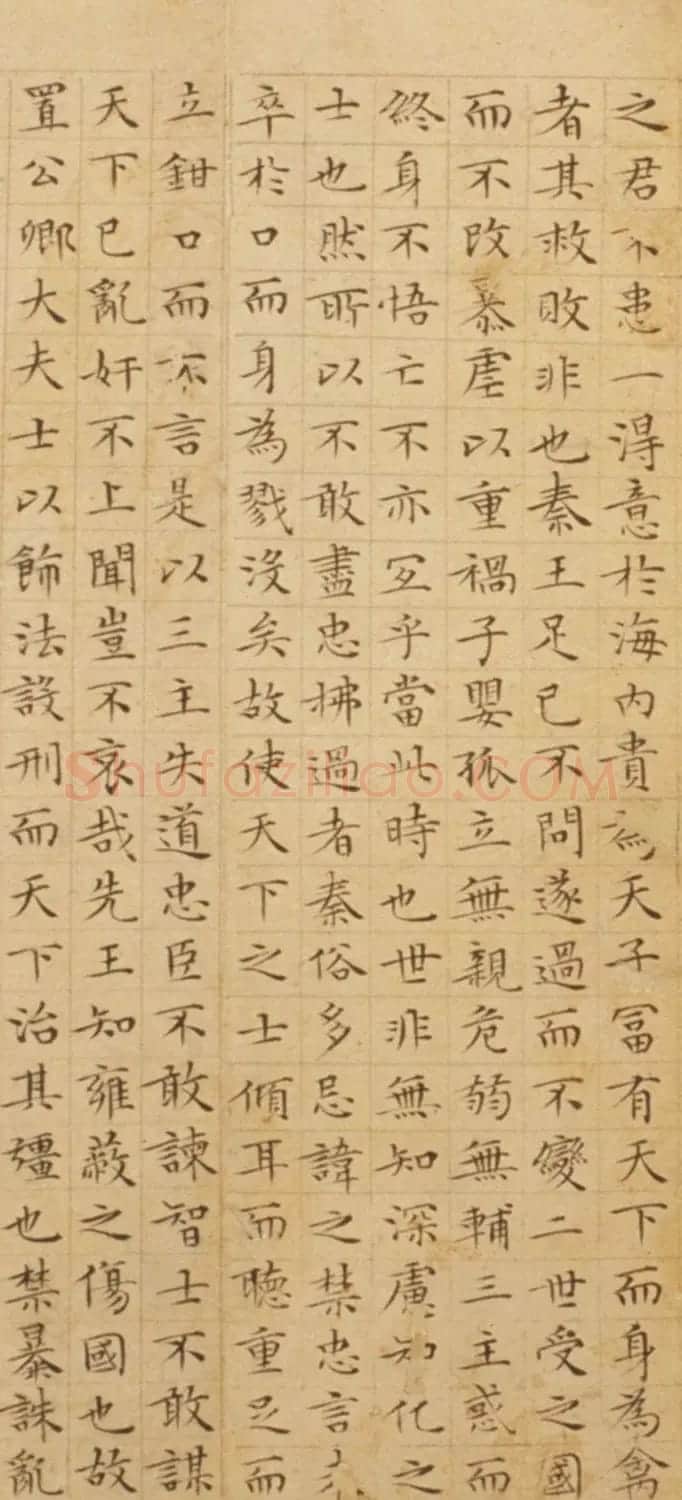 之君不患一淂意於海内貴為天子冨有天下而身為禽
者其救敗非也秦王足已不問遂過而不變二世受之因
而不改暴虐以重禍子嬰孤立無親危弱無輔三主惑而
終身不悟亡不亦冝乎當此時也世非無知深慮知化之
士也然所以不敢盡忠拂過者秦俗多忌諱之禁忠言
卒於口而身為戮沒矣故使天下之士傾耳而聴重足而
立鉗口而不言是以三主失道忠臣不敢諫智士不敢謀
天下已亂奸不上聞豈不哀哉先王知雍蔽之傷國也故
置公卿大夫士以飾法設刑而天下治其彊也禁暴誅亂